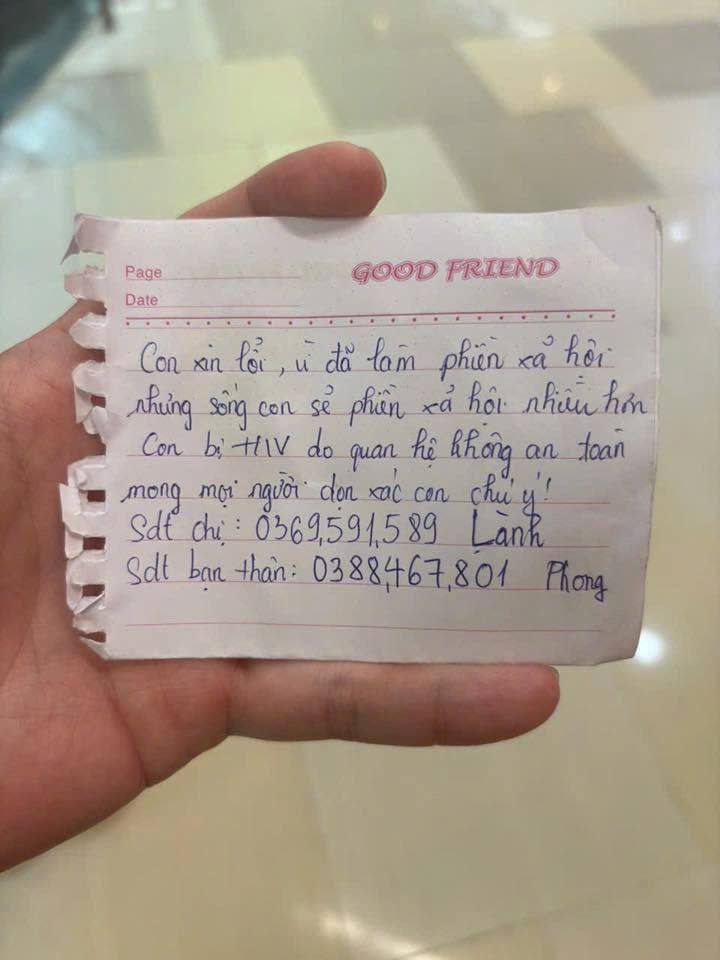 Page
GOOD FRIEND
Date
Con xin lổi, vì đã làm phiền xả hội
nhưng sống con sẻ phiền xả hội nhiều hơn
Con bị HIV do quan hệ không an toàn
mong mọi người dọn xác con chú ý!
Sdt chị: 0369,591,589 Lành
Sdt bạn thân: 0388,467,801 Phong